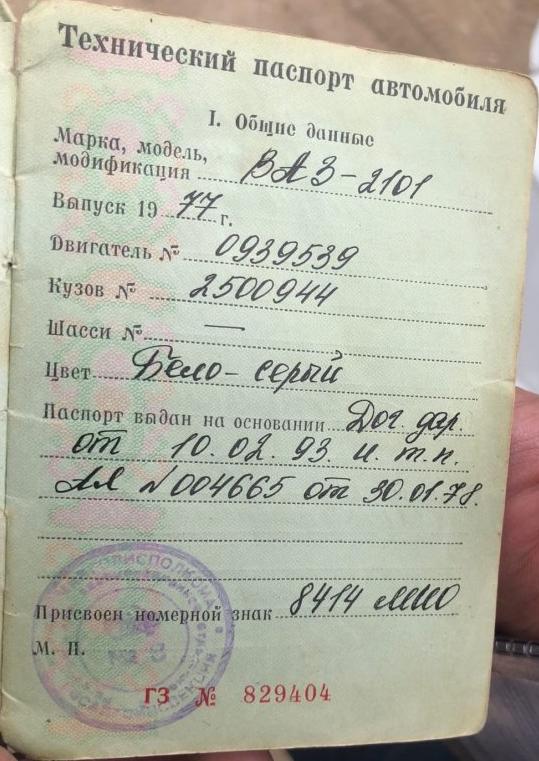 Технический паспорт автомобиля
I. Общие данные
Марка, модель,
модификация ВАЗ-2101
Выпуск 19 77 г.
Двигатель № 0939539
Кузов № 2500944
Шасси № —
Цвет Бело-серый
Паспорт выдан на основании Дог. дар.
от 10.02.93 и т.п.
АЯ №004665 от 30.01.78.
Присвоен номерной знак 8414 МИО
М. П.
ГЗ № 829404